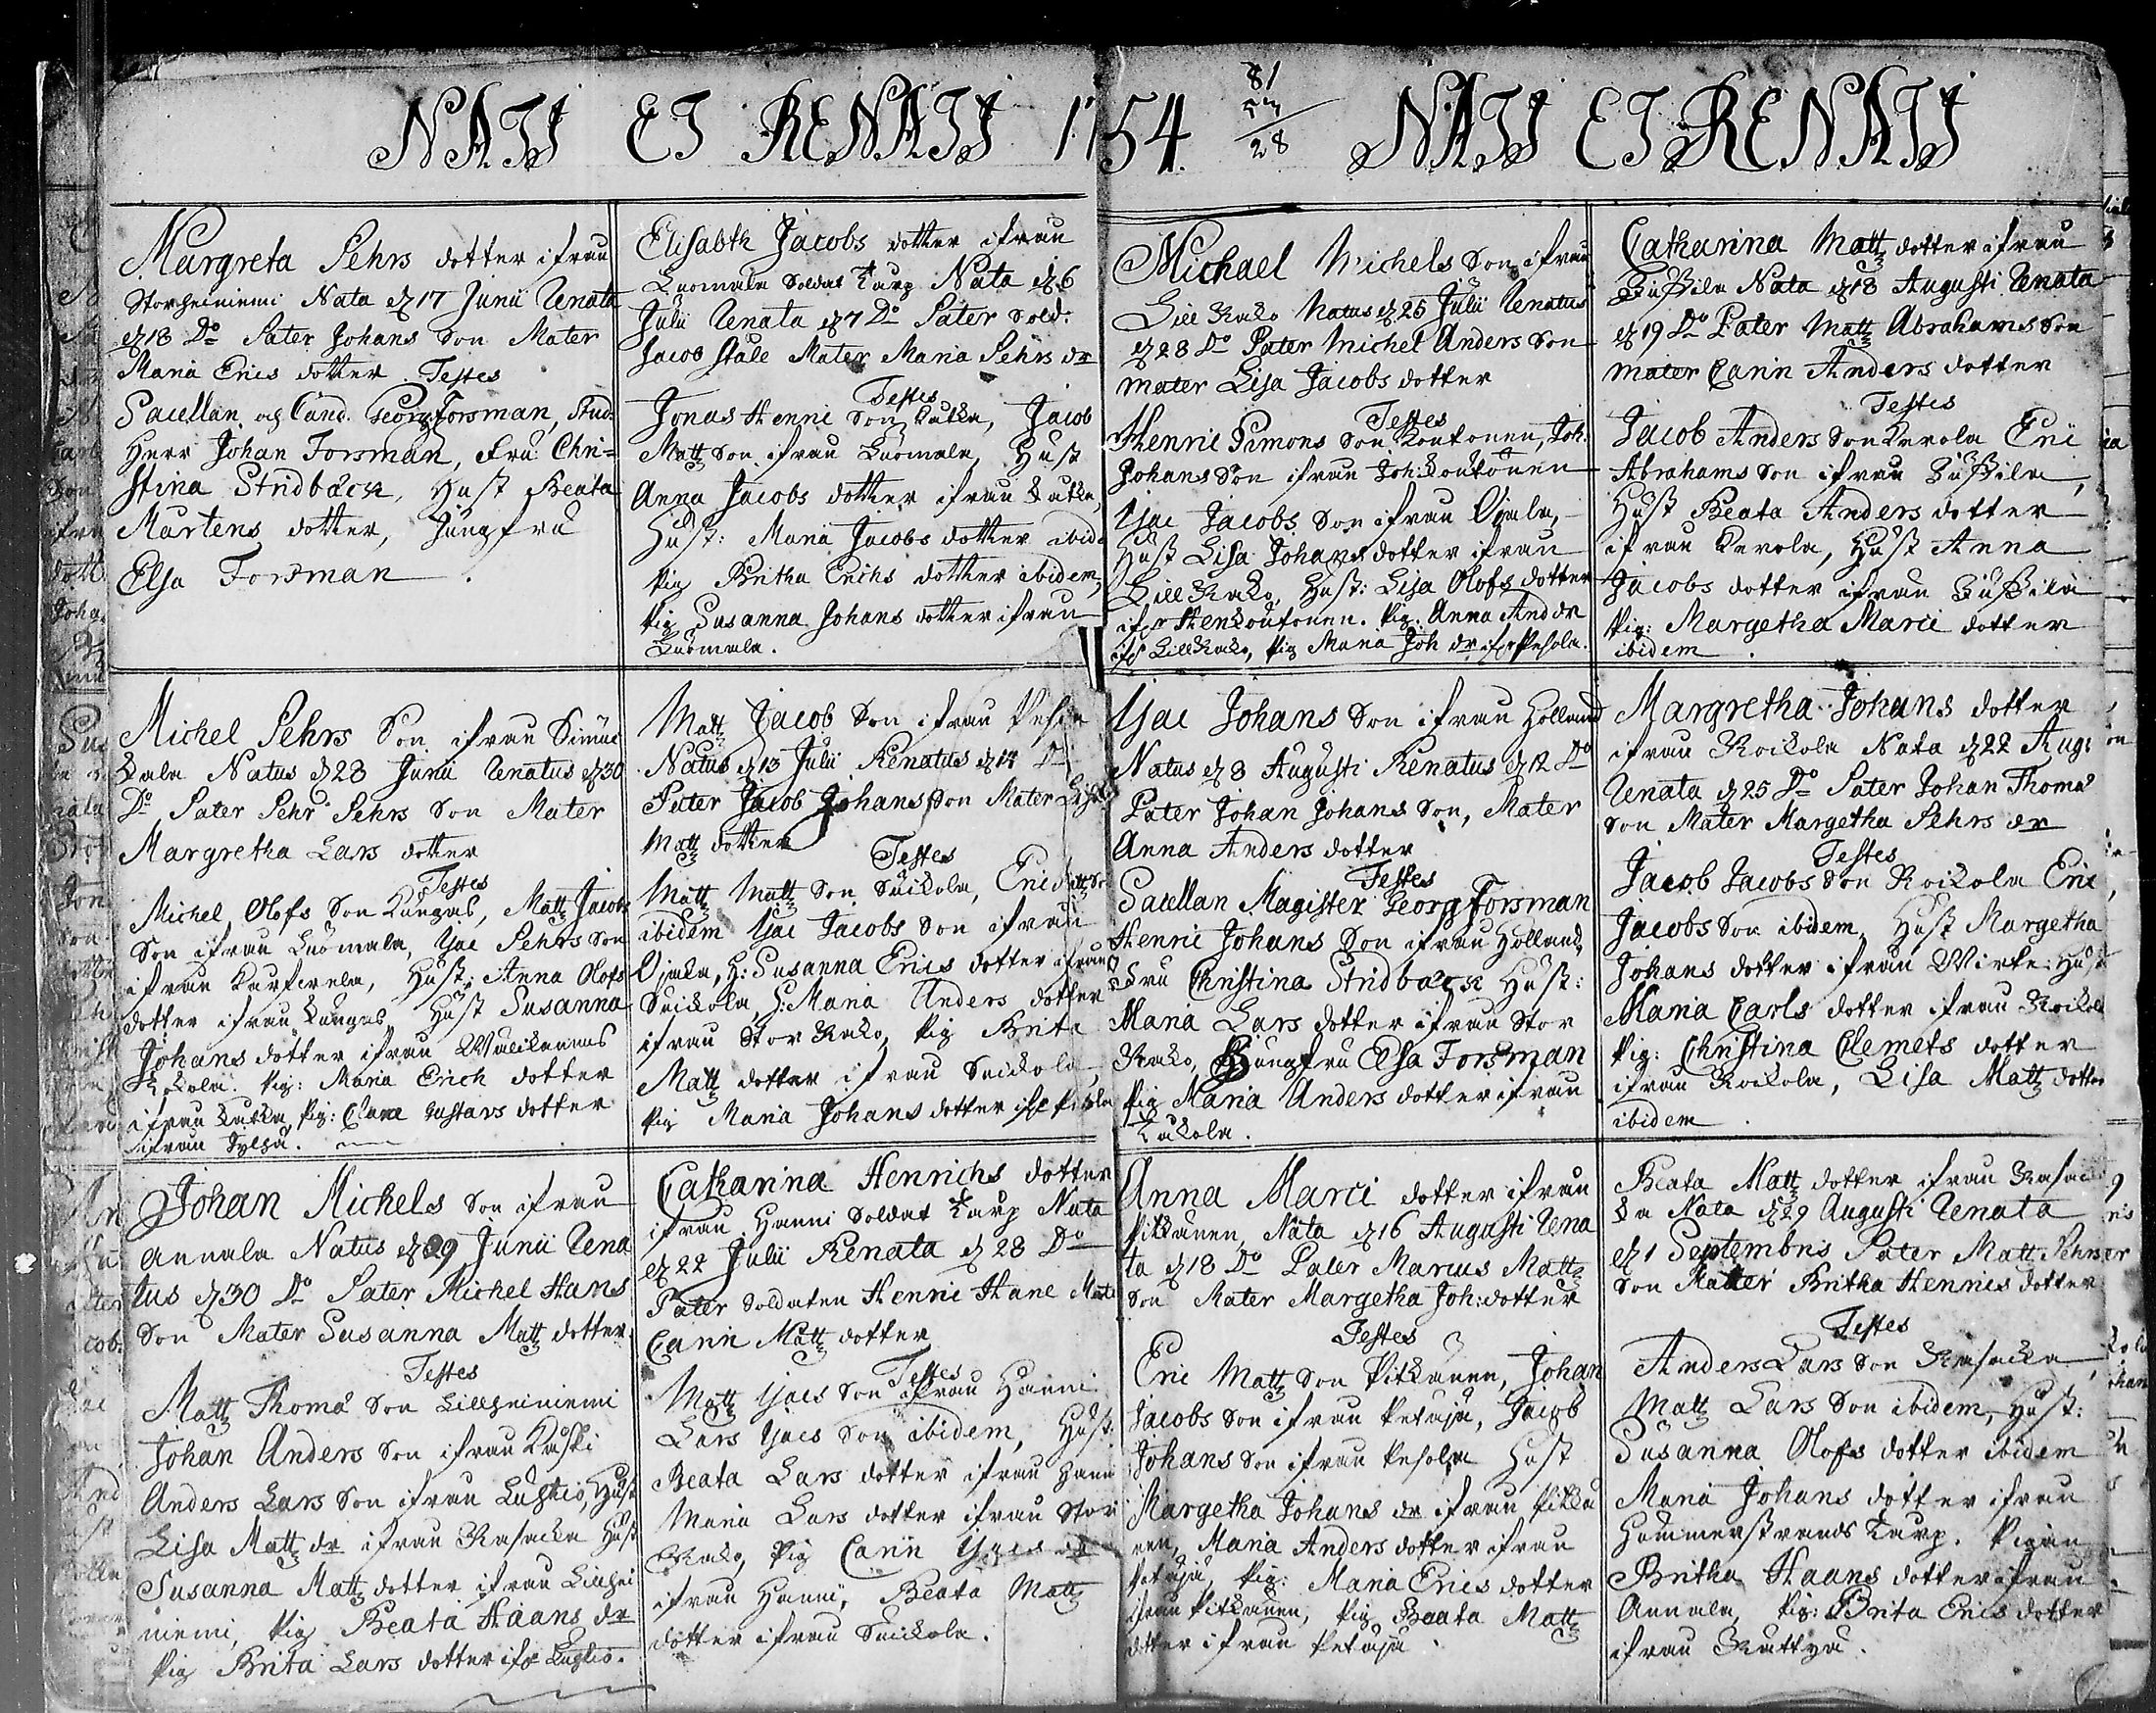 NATI ET RENATI 1754. NATI ET RENATI
81
53
28
Margreta Pehrs dotter ifrån
Storheiniemi Nata d 17 Junii Renata
d 18 Do Pater Johans Son Mater
Maria Erics dotter Testes
Sacellan. og Cand. Georg Forsman, Stud.
Herr Johan Forsman, Fru Chri=
stina Stridbäck, Hust Beata
Mårtens dotter, Jungfru
Elsa Forsman.
Michel Pehrs Son ifrån
Natus d 28 Junii Renatus d 30
Do Pater Pehr Pehrs Son Mater
Margretha Lars dotter
Testes
Michel Olofs Son Kangas, Matts Jacobs
Son ifrån Luomala, Isac Pehrs Son
ifrån Hust: Anna Olofs
dotter ifrån Kangas Hust Susanna
Johans dotter ifrån
Pig: Maria Erich dotter
ifrån Kutka, Pig: Clara Gustavs dotter
ifrån
Johan Michels Son ifrån
Annala Natus d 29 Junii Rena
tus d 30 Do Pater Michel Hans
Son Mater Susanna Matts dotter.
Testes
Matts Thomæ Son Lillheiniemi
Johan Anders Son ifrån Kaski
Anders Lars Son ifrån Luhtio, Hust
Lisa Matts dr ifrån Rasacka Hust
Susanna Matts dotter ifrån Lillhei
niemi, Pig Beata Haans dr
Pig Brita Lars dotter ifr Luhtio.
Elisabth Jacobs dotter ifrån
Luomala Soldat Torp Nata d 6
Julii Renata d 7 Do Pater Sold:
Jacob Ståle Mater Maria Pehrs dr
Testes
Jonas Henric Son Kutka, Jacob
Matts Son ifrån Luomala, Hust
Anna Jacobs dotter ifrån Kutka,
Hust: Maria Jacobs dotter ibid
Pig Britha Erichs dotter ibidem,
Pig Susanna Johans dotter ifrån
Luomala.
Matts Jacob Son ifrån
Natus d 13 Julii Renatus d 14 D
Pater Jacob Johans Son Mater Lisa
Matts dotter
Testes
Matts Matts Son Snickola, Eric Matts So
ibidem Isac Jacobs Son ifrån
Ojala, H: Susanna Erics dotter ifrån
Snickola, H: Maria Anders dotter
ifrån Stor Kako, Pig Brita
Matts dotter ifrån Snickola,
Pig Maria Johans dotter ifr Pesola
Catharina Henrichs dotter
ifrån Hanni Soldat Torp Nata
d 22 Julii Renata d 28 Do
Pater Soldaten Henric Hane Mate
Carin Matts dotter
Testes
Matts Isacs Son ifrån Hanni
Lars Isacs Son ibidem, Hust:
Beata Lars dotter ifrån Hanni
Maria Lars dotter ifrån Stor
Kako, Pig Carin Isacs dr
ifrån Hanni, Beata Matts
dotter ifrån Snickola.
Michael Michels Son ifrån
Lill Kako Natus d 25 Julii Renatus
d 28 Do Pater Michel Anders Son
Mater Lisa Jacobs dotter
Testes
Henric Simons Son Kontonen, Joh.
Johans Son ifrån Joh: Kontonen
Isac Jacobs Son ifrån Ojala,
Hust Lisa Johans dotter ifrån
Lill Kako, Hust: Lisa Olofs dotter
ifr Hen Kontonen. Pig: Anna And dr
ifr Lill Kako, Pig Maria Joh dr ifr Pesola.
Isac Johans Son ifrån Holland
Natus d 8 Augusti Renatus d 12 Do
Pater Johan Johans Son, Mater
Anna Anders dotter
Testes
Sacellan Magister Georg Forsman
Henric Johans Son ifrån Holland,
Fru Christina Stridbäck Hust:
Maria Lars dotter ifrån Stor
Kako, Jungfru Elsa Forsman
Pig Maria Anders dotter ifrån
Kukola.
Anna Marci dotter ifrån
Pitkänen, Nata d 16 Augusti Rena
ta d 18 Do Pater Marcus Matts
Son Mater Margetha Joh: dotter
Testes
Eric Matts Son Pitkänen, Johan
Jacobs Son ifrån Petäjä, Jacob
Johans Son ifrån Pesola Hust
Margetha Johans dr ifrån Pitkä
nen, Maria Anders dotter ifrån
Petäjä, Pig: Maria Erics dotter
ifrån Pitkänen, Pig Beata Matts
dotter ifrån Petäjä.
Catharina Matts dotter ifrån
Nata d 18 Augusti Renata
d 19 Do Pater Matts Abrahams Son
Mater Carin Anders dotter
Testes
Jacob Anders Son Kerola Eric
Abrahams Son ifrån
Hust Beata Anders dotter
ifrån Kerola, Hust Anna
Jacobs dotter ifrån
Pig: Margetha Marci dotter
ibidem.
Margretha Johans dotter
ifrån Rockola Nata d 22 Aug:
Renata d 25 Do Pater Johan Thomæ
Son Mater Margetha Pehrs dr
Testes
Jacob Jacobs Son Rockola Eric
Jacobs Son ibidem, Hust Margetha
Johans dotter ifrån Hust
Maria Carls dotter ifrån Rockol
Pig: Christina Clemets dotter
ifrån Rockola, Lisa Matts dotter
ibidem.
Beata Matts dotter ifrån Rasac
ka Nata d 29 Augusti Renata
d 1 Septembris Pater Matts Pehrs
Son Mater Britha Henrics dotter
Testes
Anders Lars Son Rasacka,
Matts Lars Son ibidem, Hust:
Susanna Olofs dotter ibidem
Maria Johans dotter ifrån
Hammarstrands Torp. Pigan
Britha Haans dotter ifrån
Annala, Pig: Brita Erics dotter
ifrån